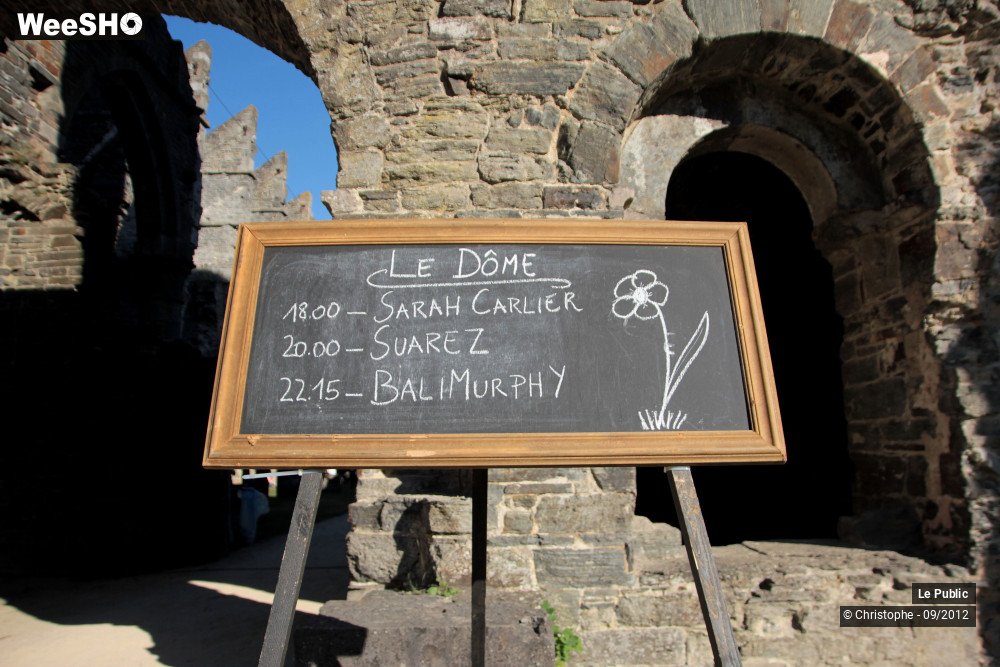 WeeSHO
Le Dôme
18.00 – Sarah Carlier
20.00 – Suarez
22.15 – BaliMurphy
Le Public
© Christophe - 09/2012